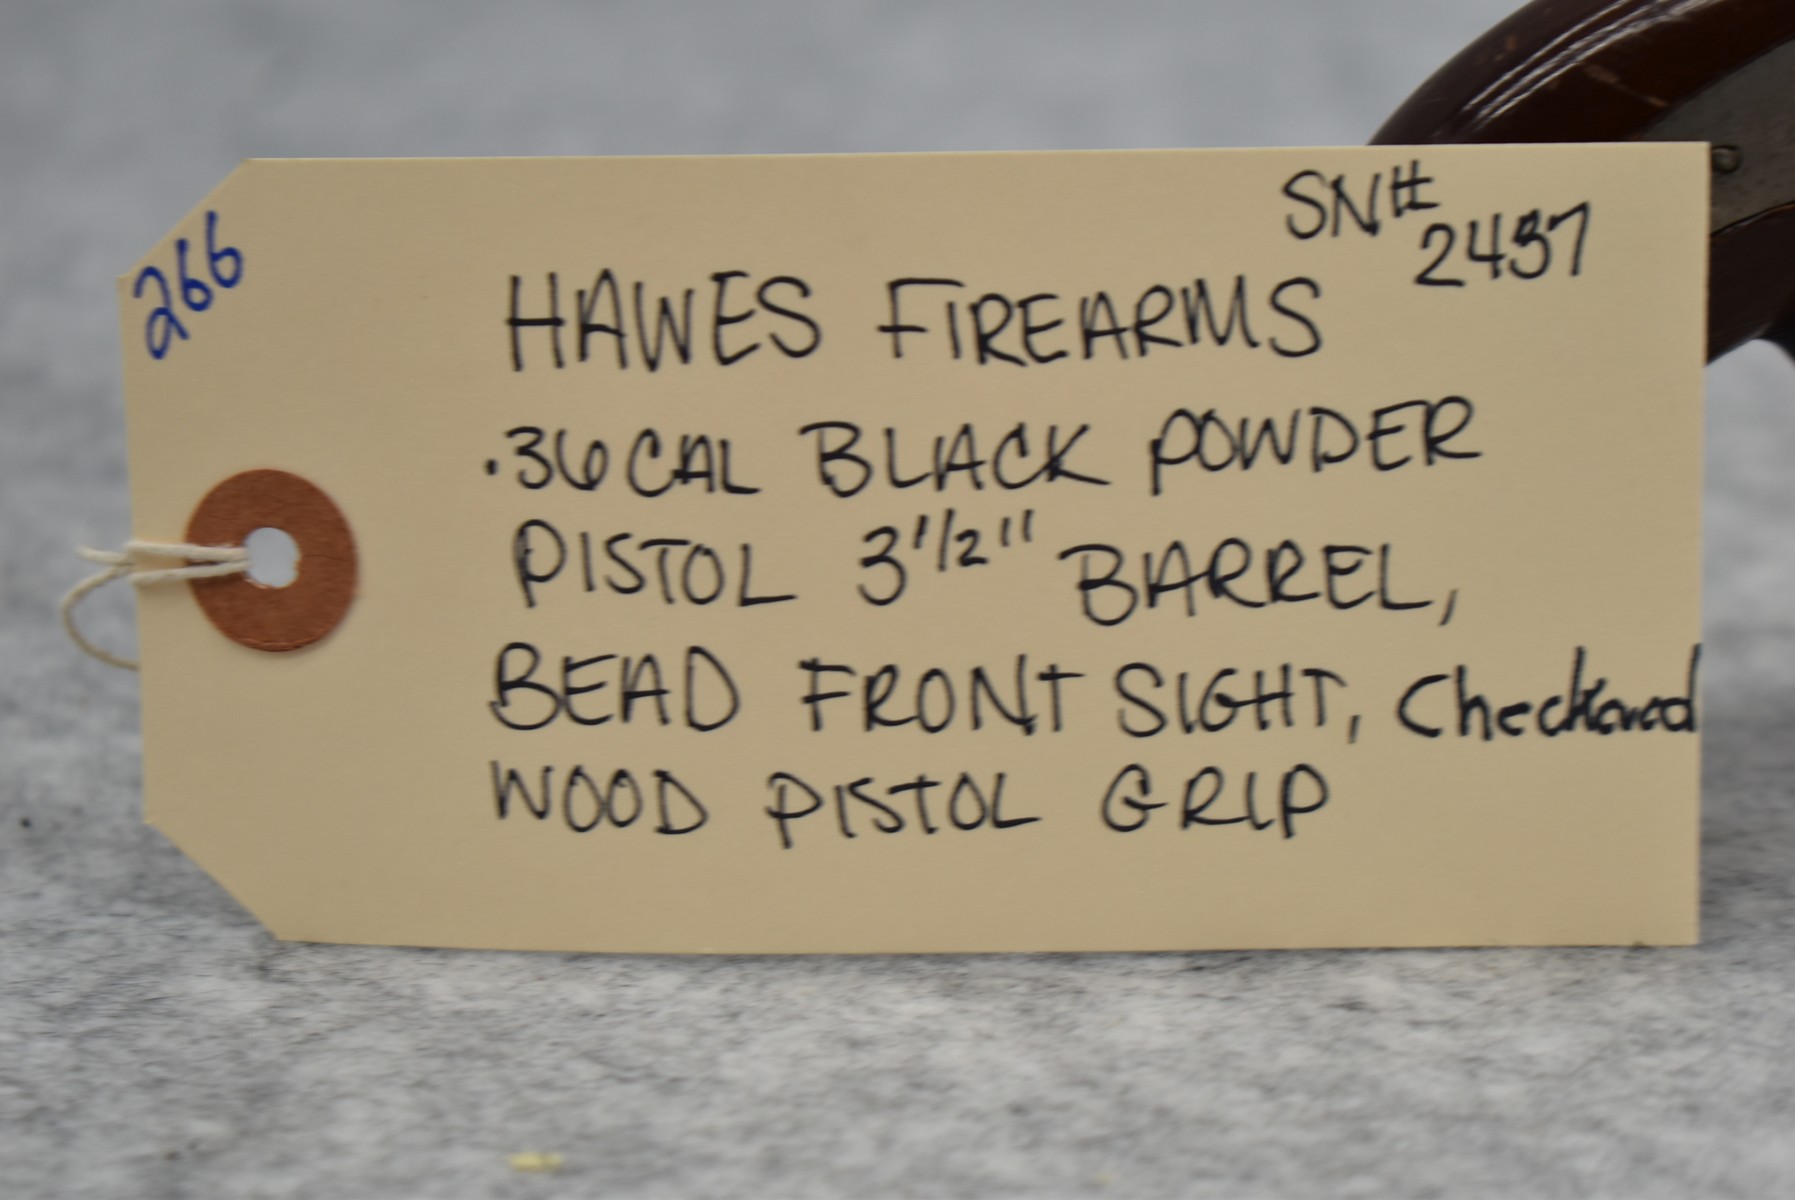 266
SN#
2437
HAWES FIREARMS
.36 CAL BLACK POWDER
PISTOL 3 1/2" BARREL,
BEAD FRONT SIGHT, Checkered
WOOD PISTOL GRIP